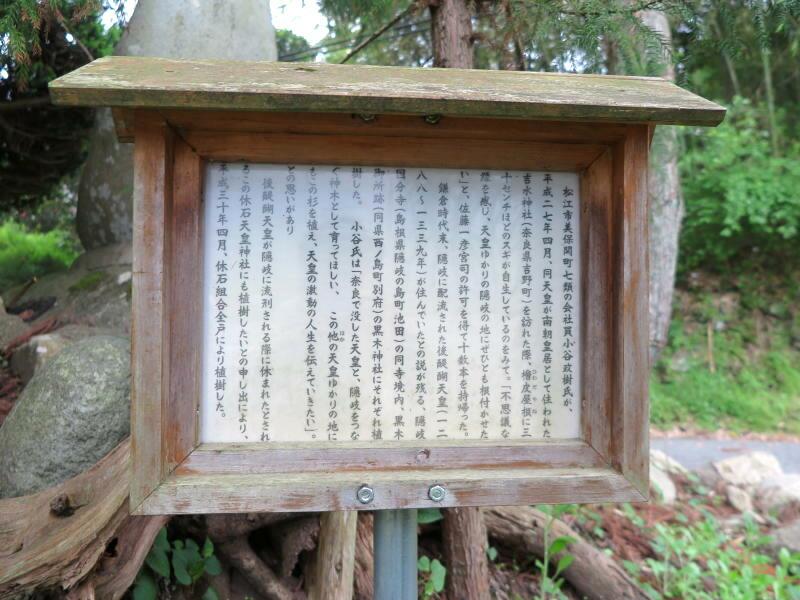 松江市美保関町七類の会社員小谷政樹氏が、
平成二七年四月、同天皇が南朝皇居として住われた
吉水神社(奈良県吉野町)を訪れた際、檜皮屋根に三
十センチほどのスギが自生しているのをみて。「不思議な
縁を感じ、天皇ゆかりの隠岐の地にぜひとも根付かせた
い」と、佐藤一彦宮司の許可を得て十数本を持帰った。
鎌倉時代末、隠岐に配流された後醍醐天皇(一二
八八~一三三九年)が住んでいたとの説が残る、隠岐
国分寺(島根県隠岐の島町池田)の同寺境内、黒木
御所跡(同県西ノ島町別府)の黒木神社にそれぞれ植
樹した。 小谷氏は「奈良で没した天皇と、隠岐をつな
ぐ神木として育ってほしい、 この他の天皇ゆかりの地に
もこの杉を植え、天皇の激動の人生を伝えていきたい」。
との思いがあり
後醍醐天皇が隠岐に流刑される際に休まれたとされ
るこの休石天皇神社にも植樹したいとの申し出により、
平成三十年四月、休石組合全戸により植樹した。